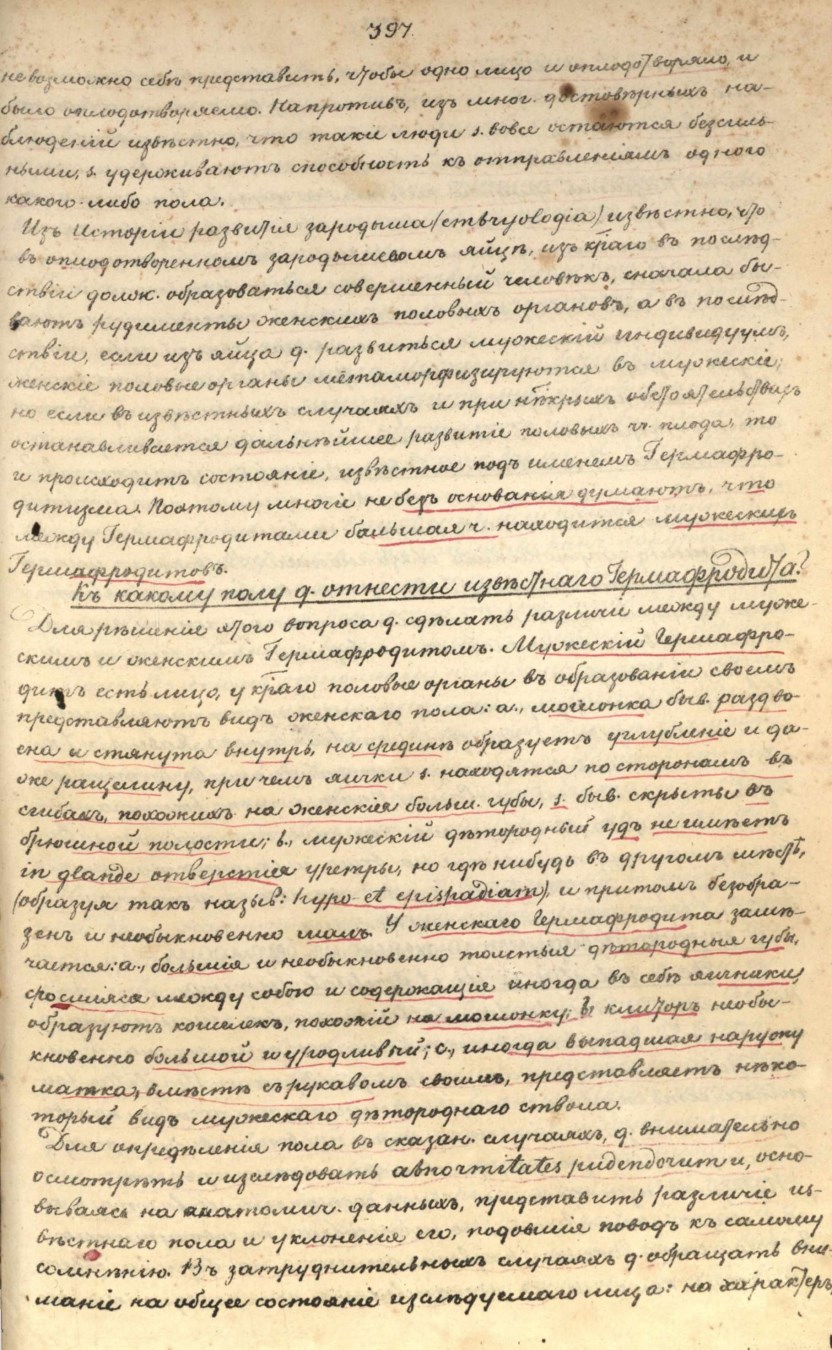 397
невозможно себѣ представить, чтобы одно лицо и оплодотворяло, и
было оплодотворяемо. Напротивъ, изъ мног. достовѣрныхъ на-
блюденій извѣстно, что такіе люди s. вовсе остаются безсиль-
ными, s. удерживаютъ способность къ отправленіямъ одного
какого-либо пола.
Изъ Исторіи развитія зародыша (embryologia) извѣстно, что
въ оплодотворенномъ зародышевомъ яйцѣ, изъ краго въ послѣд-
ствіи долж. образоваться совершенный человѣкъ, сначала бы-
ваютъ рудименты женскихъ половыхъ органовъ, а въ послѣд-
ствіи, если изъ яйца д. развиться мужескій индивидуумъ,
женскіе половые органы метаморфизируются въ мужескіе;
но если въ извѣстныхъ случаяхъ и при нѣкрыхъ обстоятельствахъ
останавливается дальнѣйшее развитіе половыхъ чч. плода, то
и происходитъ состояніе, извѣстное подъ именемъ Гермафро-
дитизма. Поэтому многіе не безъ основанія думаютъ, что
между Гермафродитами бальшая ч. находится мужескихъ
Гермафродитовъ.
Къ какому полу д. отнести извѣстнаго Гермафродита?
Для рѣшенія этого вопроса д. сдѣлать различіе между муже-
скимъ и женскимъ Гермафродитомъ. Мужескій Гермафро-
дитъ есть лицо, у краго половые органы въ образованіи своемъ
представляютъ видъ женскаго пола: a., мошонка быв. раздво-
ена и стянута внутрь, на срединѣ образуетъ углубленіе и да-
же ращелину, при чемъ яички s. находятся по сторонамъ въ
сгибахъ, похожихъ на женскія больш. губы, s. быв. скрыты въ
брюшной полости; b., мужескій дѣтородный удъ не имѣетъ
in glande отверстія уретры, но гдѣ нибудь въ другомъ мѣстѣ,
(образуя такъ назыв: hypo et epispadiam), и притомъ безобра-
зенъ и необыкновенно малъ. У женскаго Гермафродита замѣ-
чается: a., большія и необыкновенно толстыя дѣтородныя губы,
сросшіяся между собою и содержащія иногда въ себѣ яичники,
образуютъ кошелекъ, похожій на мошонку; b., клиторъ необы-
кновенно большой и уродливый; c., иногда выпадшая наружу
матка, вмѣстѣ съ рукавомъ своимъ, представляетъ нѣко-
торый видъ мужескаго дѣтороднаго ствола.
Для опредѣленія пола въ сказан. случаяхъ, д. внимательно
осмотрѣть и изслѣдовать abnormitates pudendorum и, осно-
вываясь на анатомич. данныхъ, представить различіе из-
вѣстнаго пола и уклоненія его, подовшія поводъ къ самому
сомнѣнію. Въ затруднительныхъ случаяхъ д. обращать вни-
маніе на общее состояніе изслѣдуемаго лица: на характеръ,